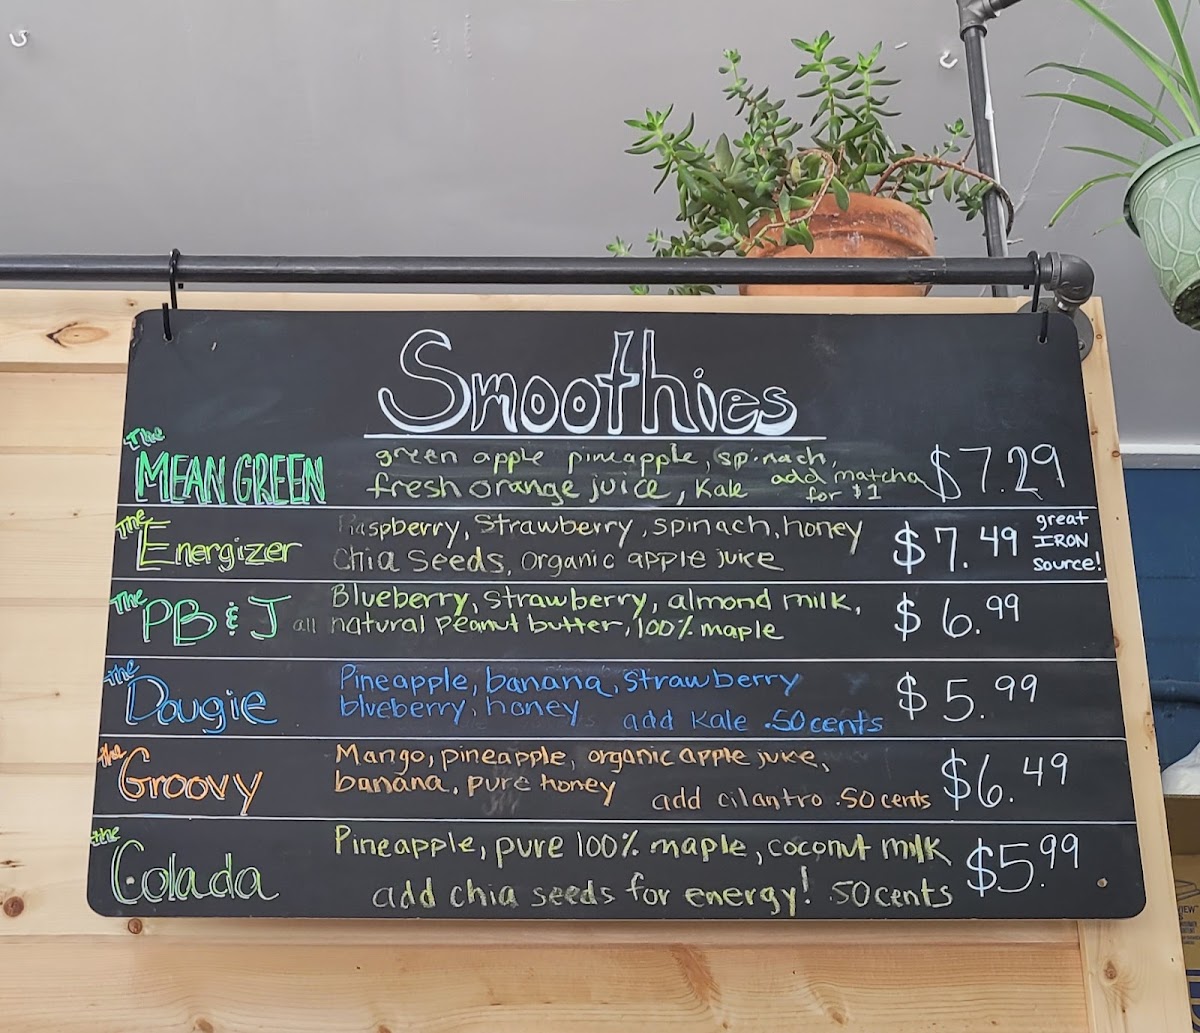 Smoothies
The
MEAN GREEN
green apple pineapple, spinach,
fresh orange juice, Kale
add matcha
for $1
$7.29
The
Energizer
Raspberry, Strawberry, spinach, honey
Chia Seeds, Organic apple juice
$7.49
great
IRON
Source!
The
PB & J
Blueberry, Strawberry, almond milk,
all natural peanut butter, 100% maple
$6.99
the
Dougie
Pineapple, banana, Strawberry
blueberry, honey
add Kale .50 cents
$5.99
the
Groovy
Mango, pineapple, organic apple juice,
banana, pure honey
add cilantro .50 cents
$6.49
the
Colada
Pineapple, pure 100% maple, coconut milk
add chia seeds for energy! .50 cents
$5.99